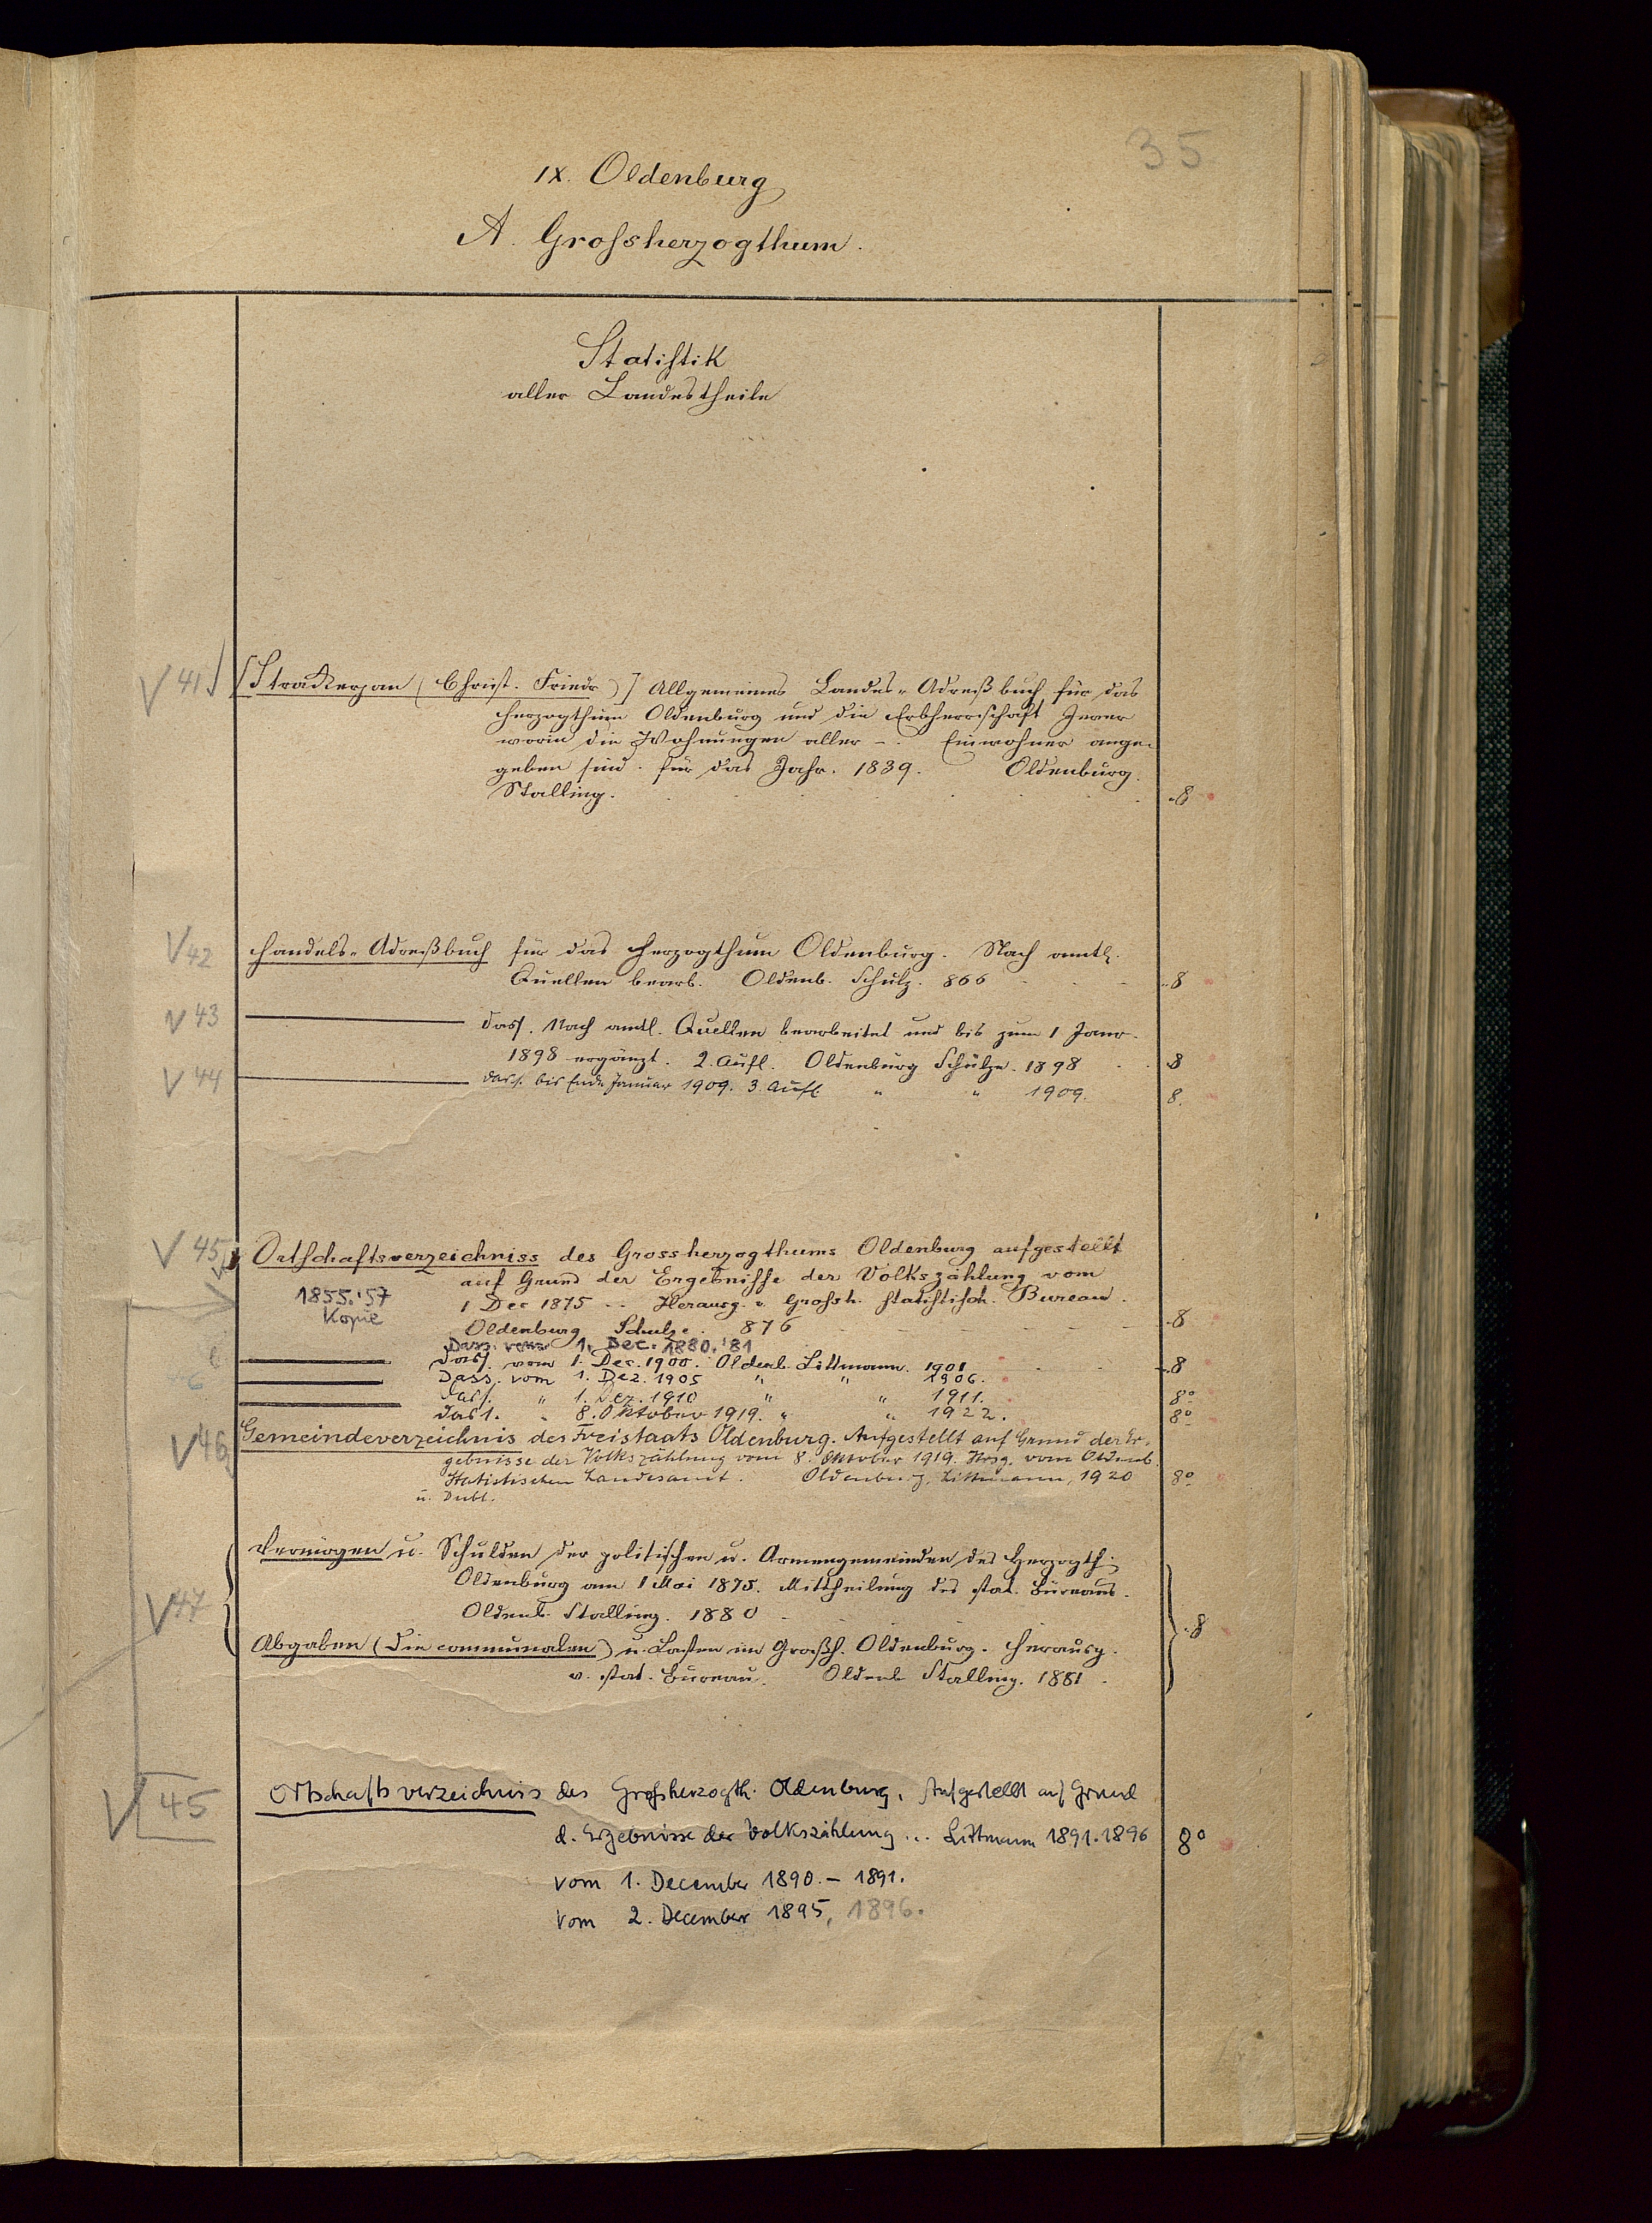 35
IX. Oldenburg
A. Grossherzogthum.
Statistik
aller Landestheile
V 41 [Strackerjan (Christ. Friedr.)] Allgemeines Landes-Adreßbuch für das
Herzogthum Oldenburg und die Erbherrschaft Jever
worin die Wohnungen aller -. Einwohner ange-
geben sind. für das Jahr. 1839. Oldenburg.
Stalling. 8
V 42 Handels-Adreßbuch für das Herzogthum Oldenburg. Nach amtl.
Quellen bearb. Oldenb. Schulz. 866 8
V 43 dass. Nach amtl. Quellen bearbeitet und bis zum 1 Janr.
1898 ergänzt. 2. Aufl. Oldenburg Schulze. 1898 8
V 44 dass. bis Ende Januar 1909. 3 Aufl. " " 1909. 8.
V 45 Ortschaftsverzeichniss des Grossherzogthums Oldenburg aufgestellt
auf Grund der Ergebnisse der Volkszählung vom
1855.'57 1 Dec 1875 .. Herausg. v. Grossh. statistisch. Bureau.
Kopie Oldenburg Schulze. 876 8
Dass. vom 1. Dec. 1880.'81
dass. vom 1. Dec. 1900. Oldenb. Littmann. 1901 8
Dass. vom 1. Dez. 1905 " " 1906.
dass. " 1. Dez. 1910 " " 1911. 8°
dass. " 8. Oktober 1919. " " 1922. 8°
V 46 Gemeindeverzeichnis des Freistaats Oldenburg. Aufgestellt auf Grund der Er-
gebnisse der Volkszählung vom 8. Oktober 1919. Hrsg. vom Oldenb.
Statistischen Landesamt. Oldenburg, Littmann, 1920 8°
u. Dubl.
Vermögen u. Schulden der politischen u. Armengemeinden des Herzogth.
Oldenburg am 1 Mai 1875. Mittheilung des stat. Bureaus.
V 47 Oldenb. Stalling. 1880
Abgaben (Die communalen) u. Lasten im Großh. Oldenburg. Herausg. 8
v. stat. Bureau. Oldenb Stalling. 1881.
V 45 Ortschaftsverzeichnis des Grossherzogth. Oldenburg. Aufgestellt auf Grund
d. Ergebnisse der Volkszählung ... Littmann 1891.1896 8°
vom 1. December 1890. - 1891.
vom 2. December 1895, 1896.